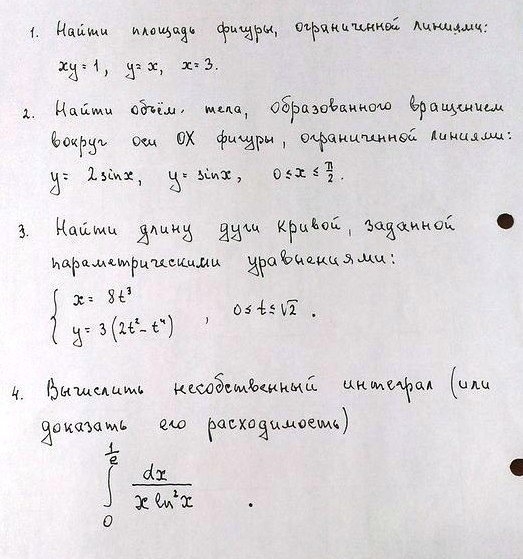 1. Найти площадь фигуры, ограниченной линиями:
xy = 1, y = x, x = 3.
2. Найти объём тела, образованного вращением
вокруг оси OX фигуры, ограниченной линиями:
y = 2 sin x, y = sin x, 0 ≤ x ≤ π/2.
3. Найти длину дуги кривой, заданной
параметрическими уравнениями:
{ x = 8t³
y = 3(2t² - t⁴) , 0 ≤ t ≤ √2.
4. Вычислить несобственный интеграл (или
доказать его расходимость)
∫₀^(1/e) dx / (x ln² x).